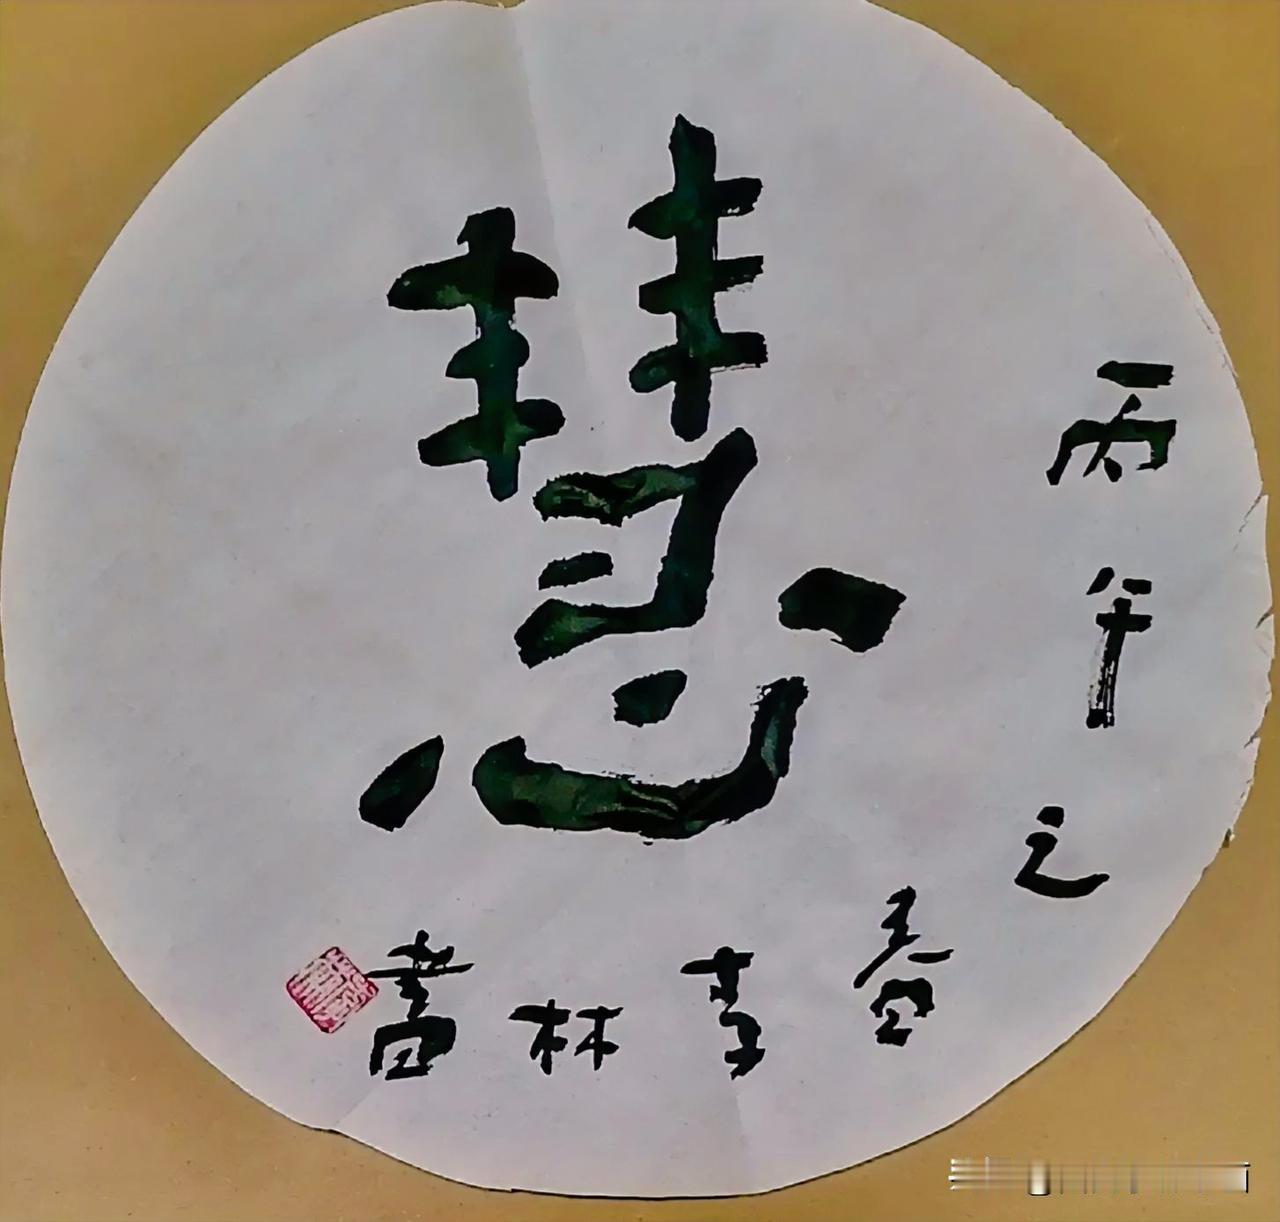 慧
丙午之春李林書